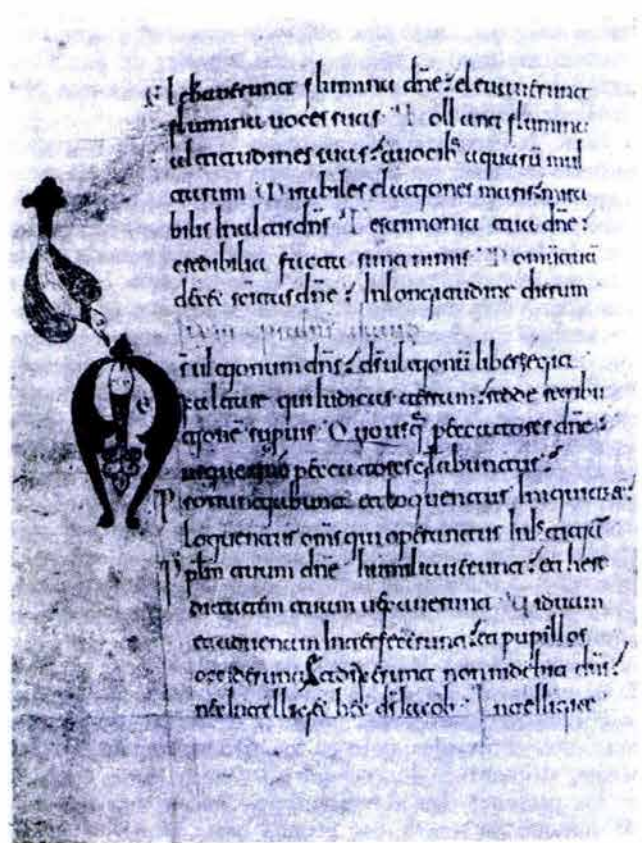 Elebauerunt flumina dñe: eleuauerunt
flumina uoces suas Tollant flumina
altitudines suas: a uocib; aquarū mul
tarum Mirabiles elationes maris: mira
bilis In altis dñs Testimonia tua dñe:
credibilia facta sunt nimis Domū tuā
decet dñe: In longitudine dierum
ultionum dñs: ds ultionū libere egit
Exaltare qui Iudicas terram: redde retribu
tionē supuis Quousq; peccatores dñe:
usquequo peccatores glabuntur:
Pronuntiabunt et loquentur Iniquitatē:
Loquentur oms qui operantur
Pplm tuum dñe humiliauerunt: et here
ditatem tuam uexauerunt Viduam
et aduenam Interfecerunt: et pupillos
occiderunt Et dixerunt non uidebit dñs:
nec Intelliget hec ds Iacob Intelligite